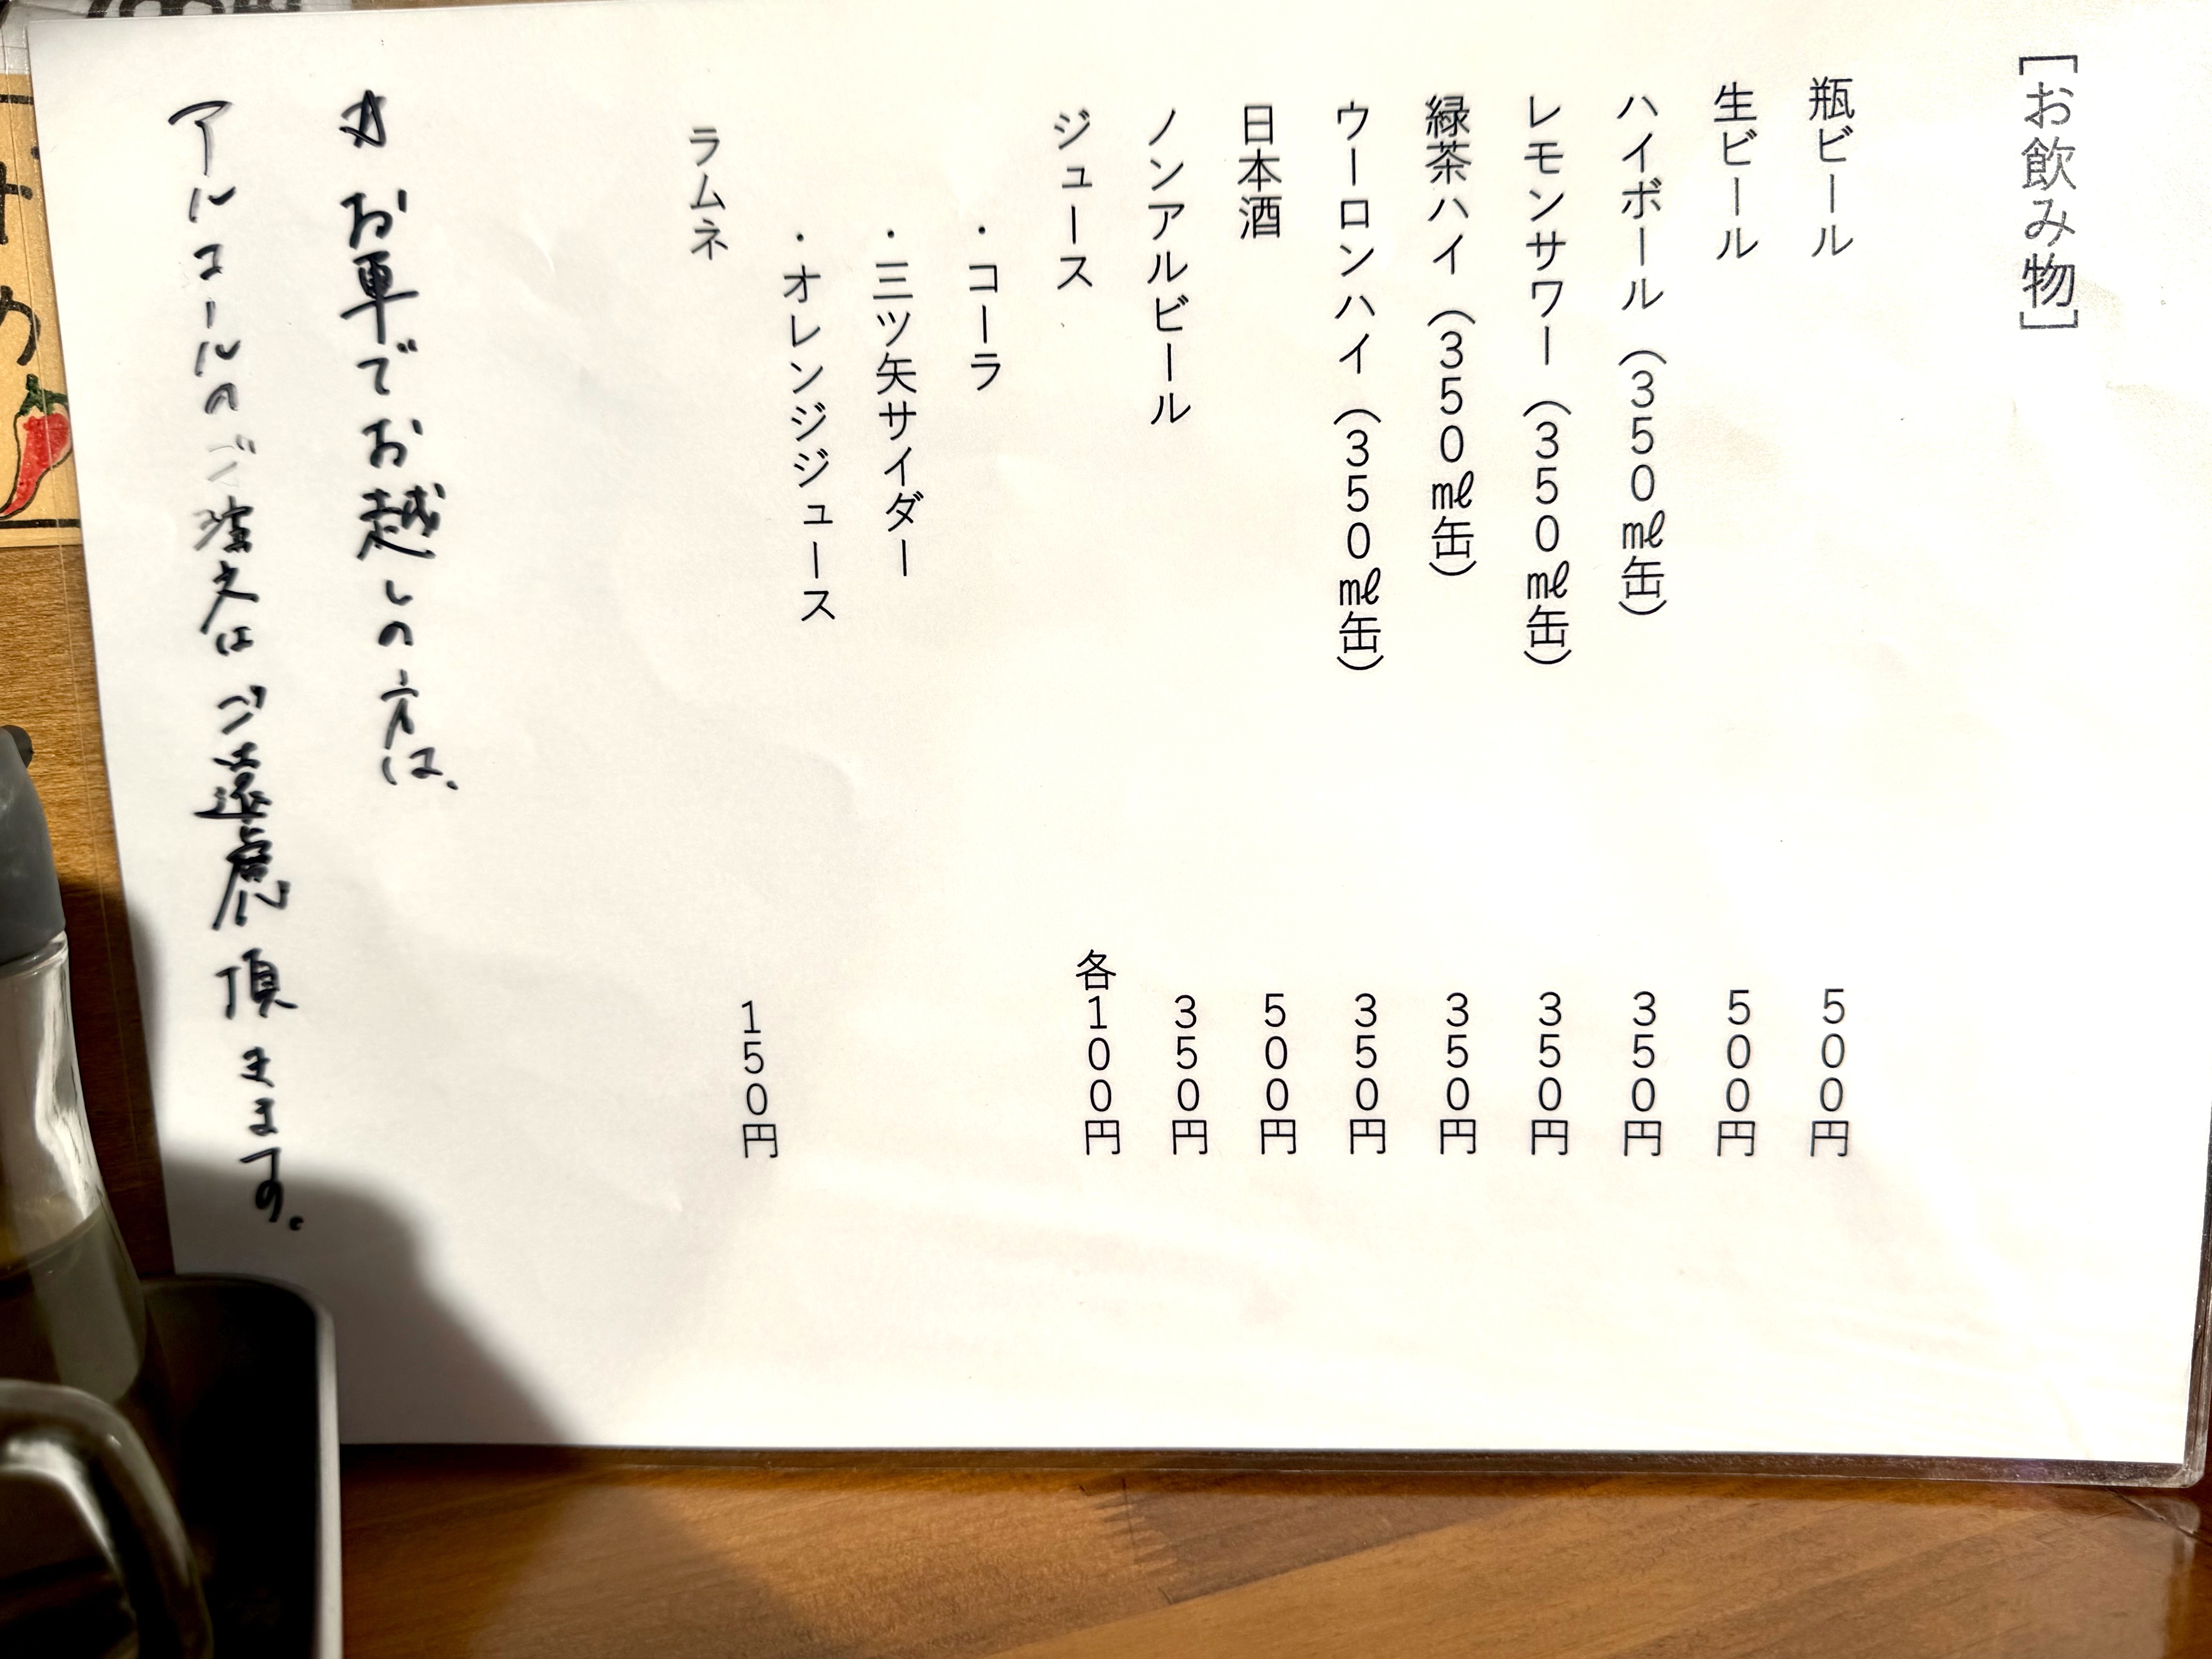 [お飲み物]
瓶ビール 500円
生ビール 500円
ハイボール（350㎖缶） 350円
レモンサワー（350㎖缶） 350円
緑茶ハイ（350㎖缶） 350円
ウーロンハイ（350㎖缶） 350円
日本酒 500円
ノンアルビール 350円
ジュース 各100円
・コーラ
・三ツ矢サイダー
・オレンジジュース
ラムネ 150円
☆お車でお越しの方は、
アルコールのご注文はご遠慮頂きます。